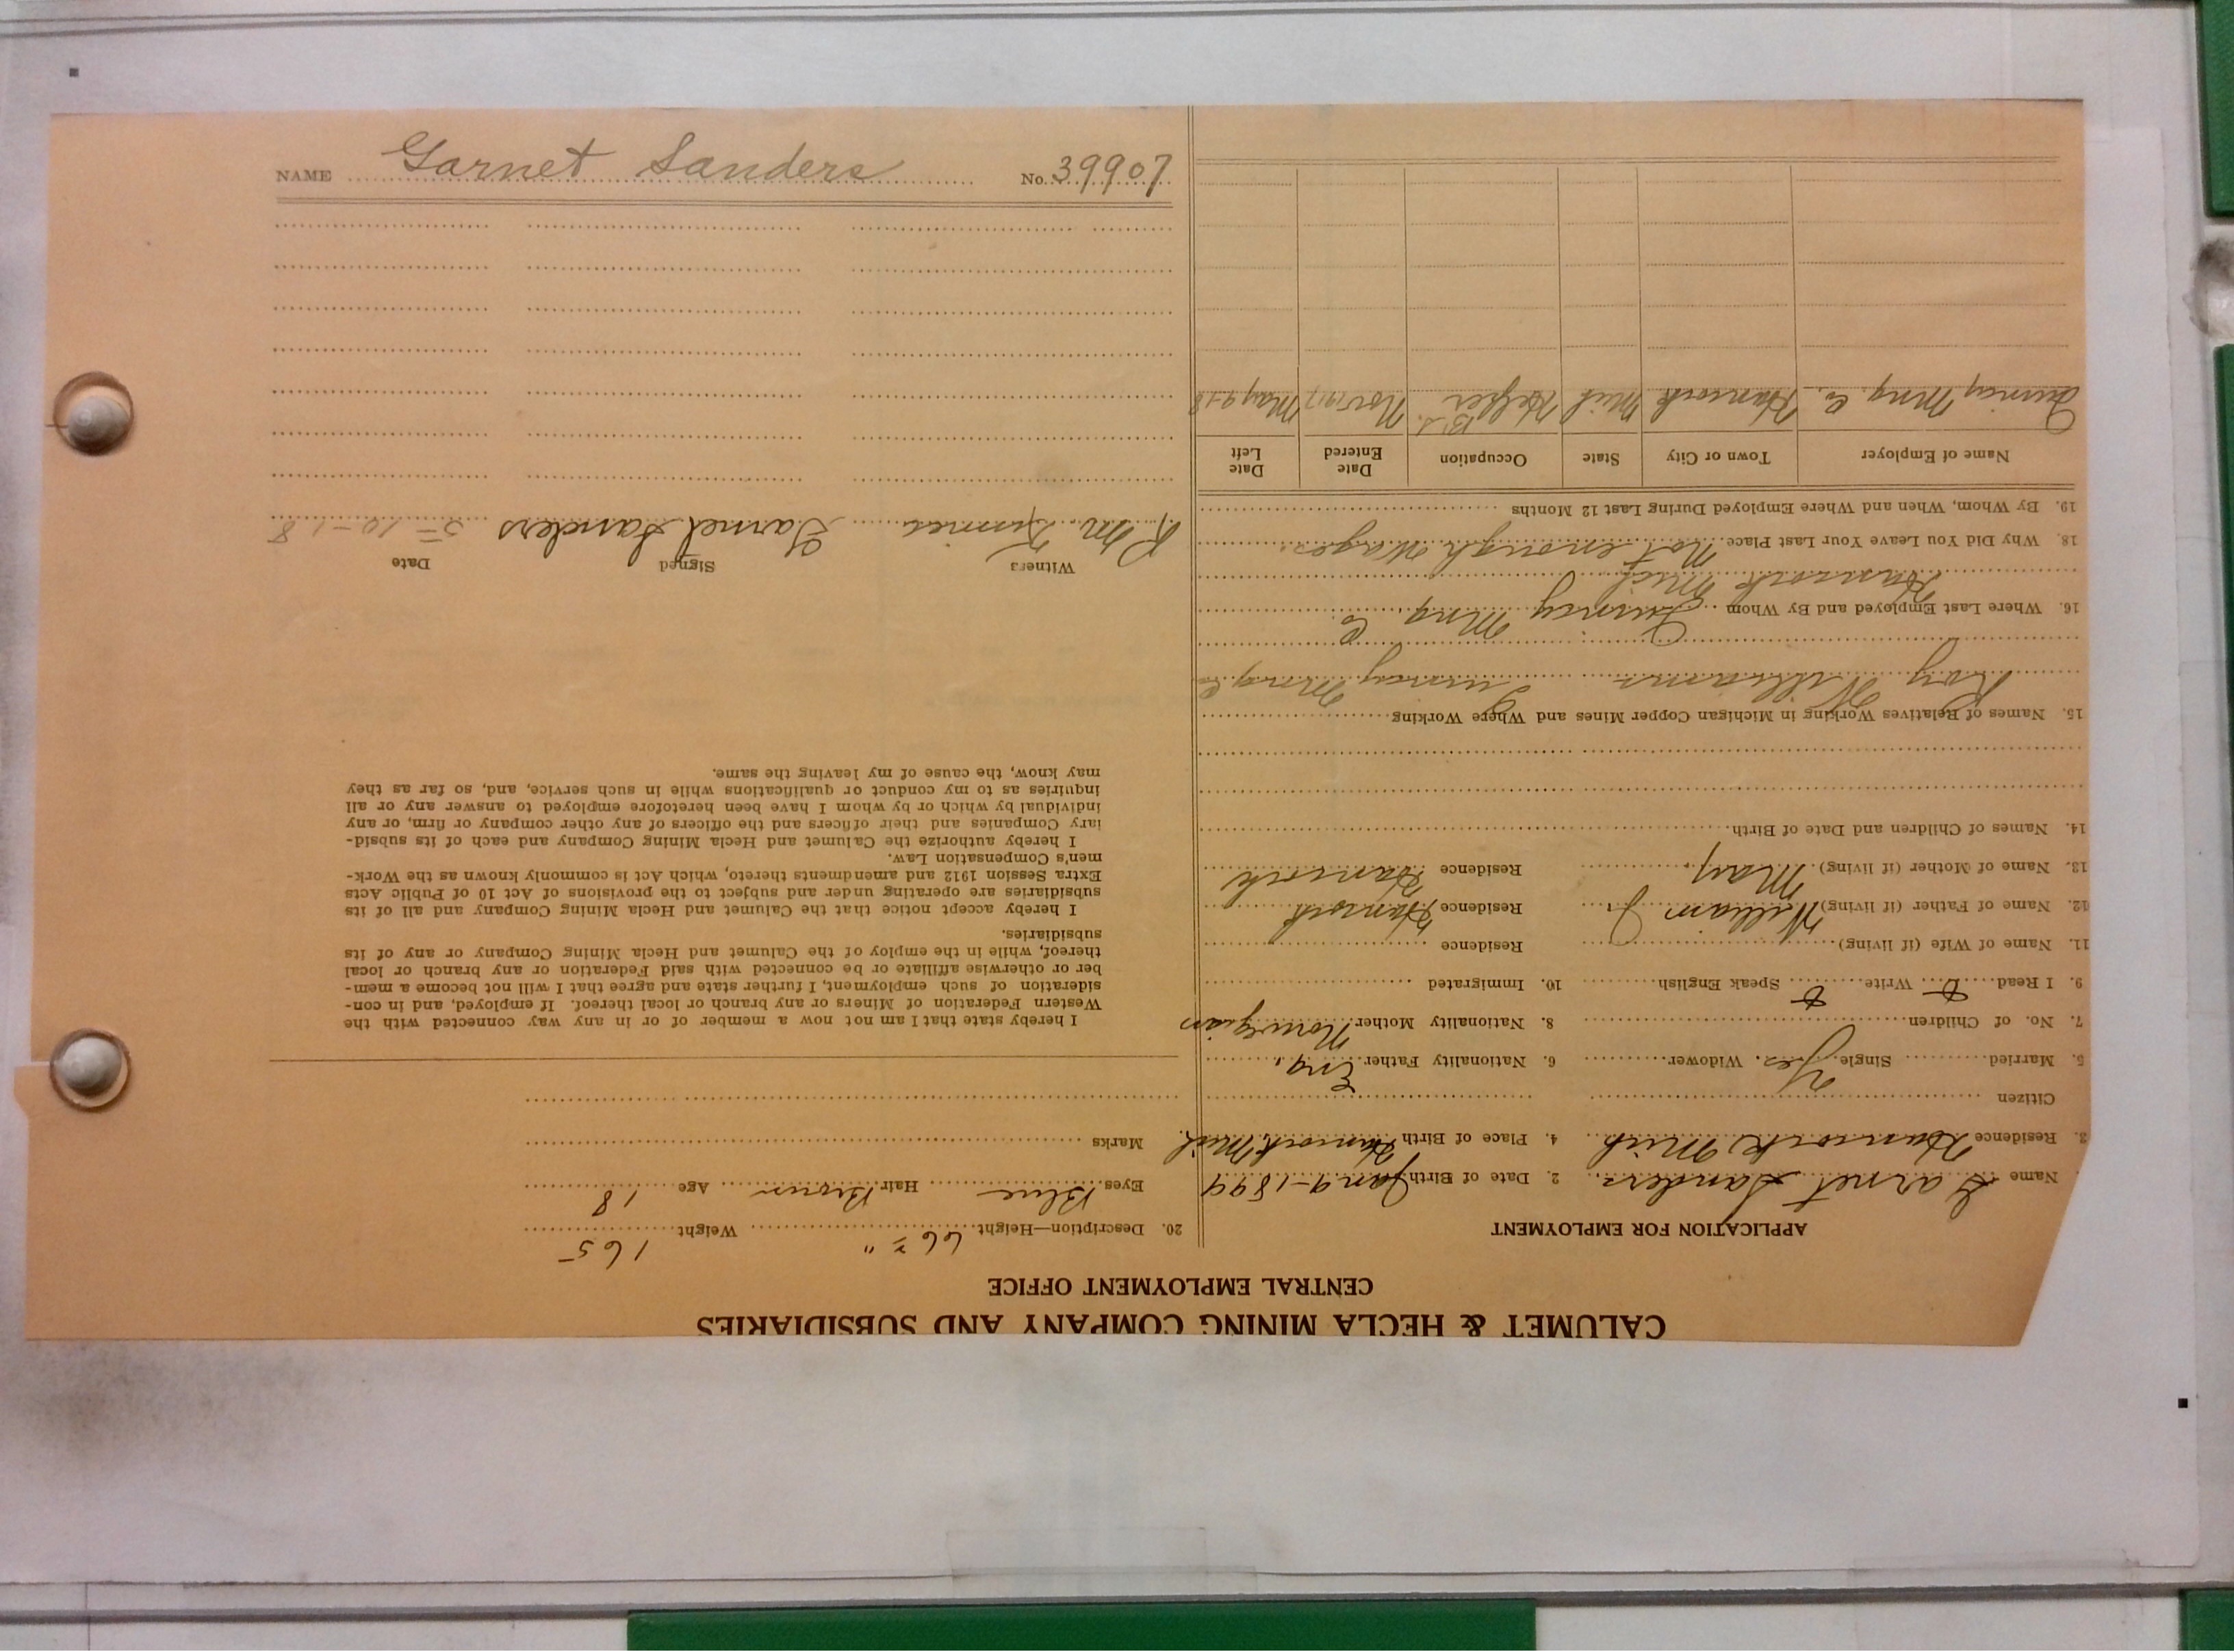 NAME Garnet Sanders No. 39907
CALUMET & HECLA MINING COMPANY AND SUBSIDIARIES
CENTRAL EMPLOYMENT OFFICE
APPLICATION FOR EMPLOYMENT
Name Garnet Sanders 2. Date of Birth Jan 9-1899
3. Residence Hancock, Mich 4. Place of Birth Hancock Mich.
Citizen
5. Married Single Yes. Widower 6. Nationality Father Eng.
7. No. of Children 8. Nationality Mother Norwegian
9. I Read Write Speak English 10. Immigrated
11. Name of Wife (if living) Residence
12. Name of Father (if living) William J. Residence Hancock
13. Name of Mother (if living) Mary Residence Hancock
14. Names of Children and Date of Birth
15. Names of Relatives Working in Michigan Copper Mines and Where Working
Roy Williams Quincy Mng Co
16. Where Last Employed and By Whom Quincy Mng. Co.
Hancock Mich
18. Why Did You Leave Your Last Place Not enough Wages.
19. By Whom, When and Where Employed During Last 12 Months
Name of Employer Town or City State Occupation Date Entered Date Left
Quincy Mng. Co. Hancock Mich B.S. Helper Nov 1917 May 9 18
20. Description—Height 66 " Weight 165
Eyes Blue Hair Brown Age 18
Marks
I hereby state that I am not now a member of or in any way connected with the
Western Federation of Miners or any branch or local thereof. If employed, and in con-
sideration of such employment, I further state and agree that I will not become a mem-
ber or otherwise affiliate or be connected with said Federation or any branch or local
thereof, while in the employ of the Calumet and Hecla Mining Company or any of its
subsidiaries.
I hereby accept notice that the Calumet and Hecla Mining Company and all of its
subsidiaries are operating under and subject to the provisions of Act 10 of Public Acts
Extra Session 1912 and amendments thereto, which Act is commonly known as the Work-
men's Compensation Law.
I hereby authorize the Calumet and Hecla Mining Company and each of its subsid-
iary Companies and their officers and the officers of any other company or firm, or any
individual by which or by whom I have been heretofore employed to answer any or all
inquiries as to my conduct or qualifications while in such service, and, so far as they
may know, the cause of my leaving the same.
Witness Signed Date
R. M. Garnet Sanders 5-10-18